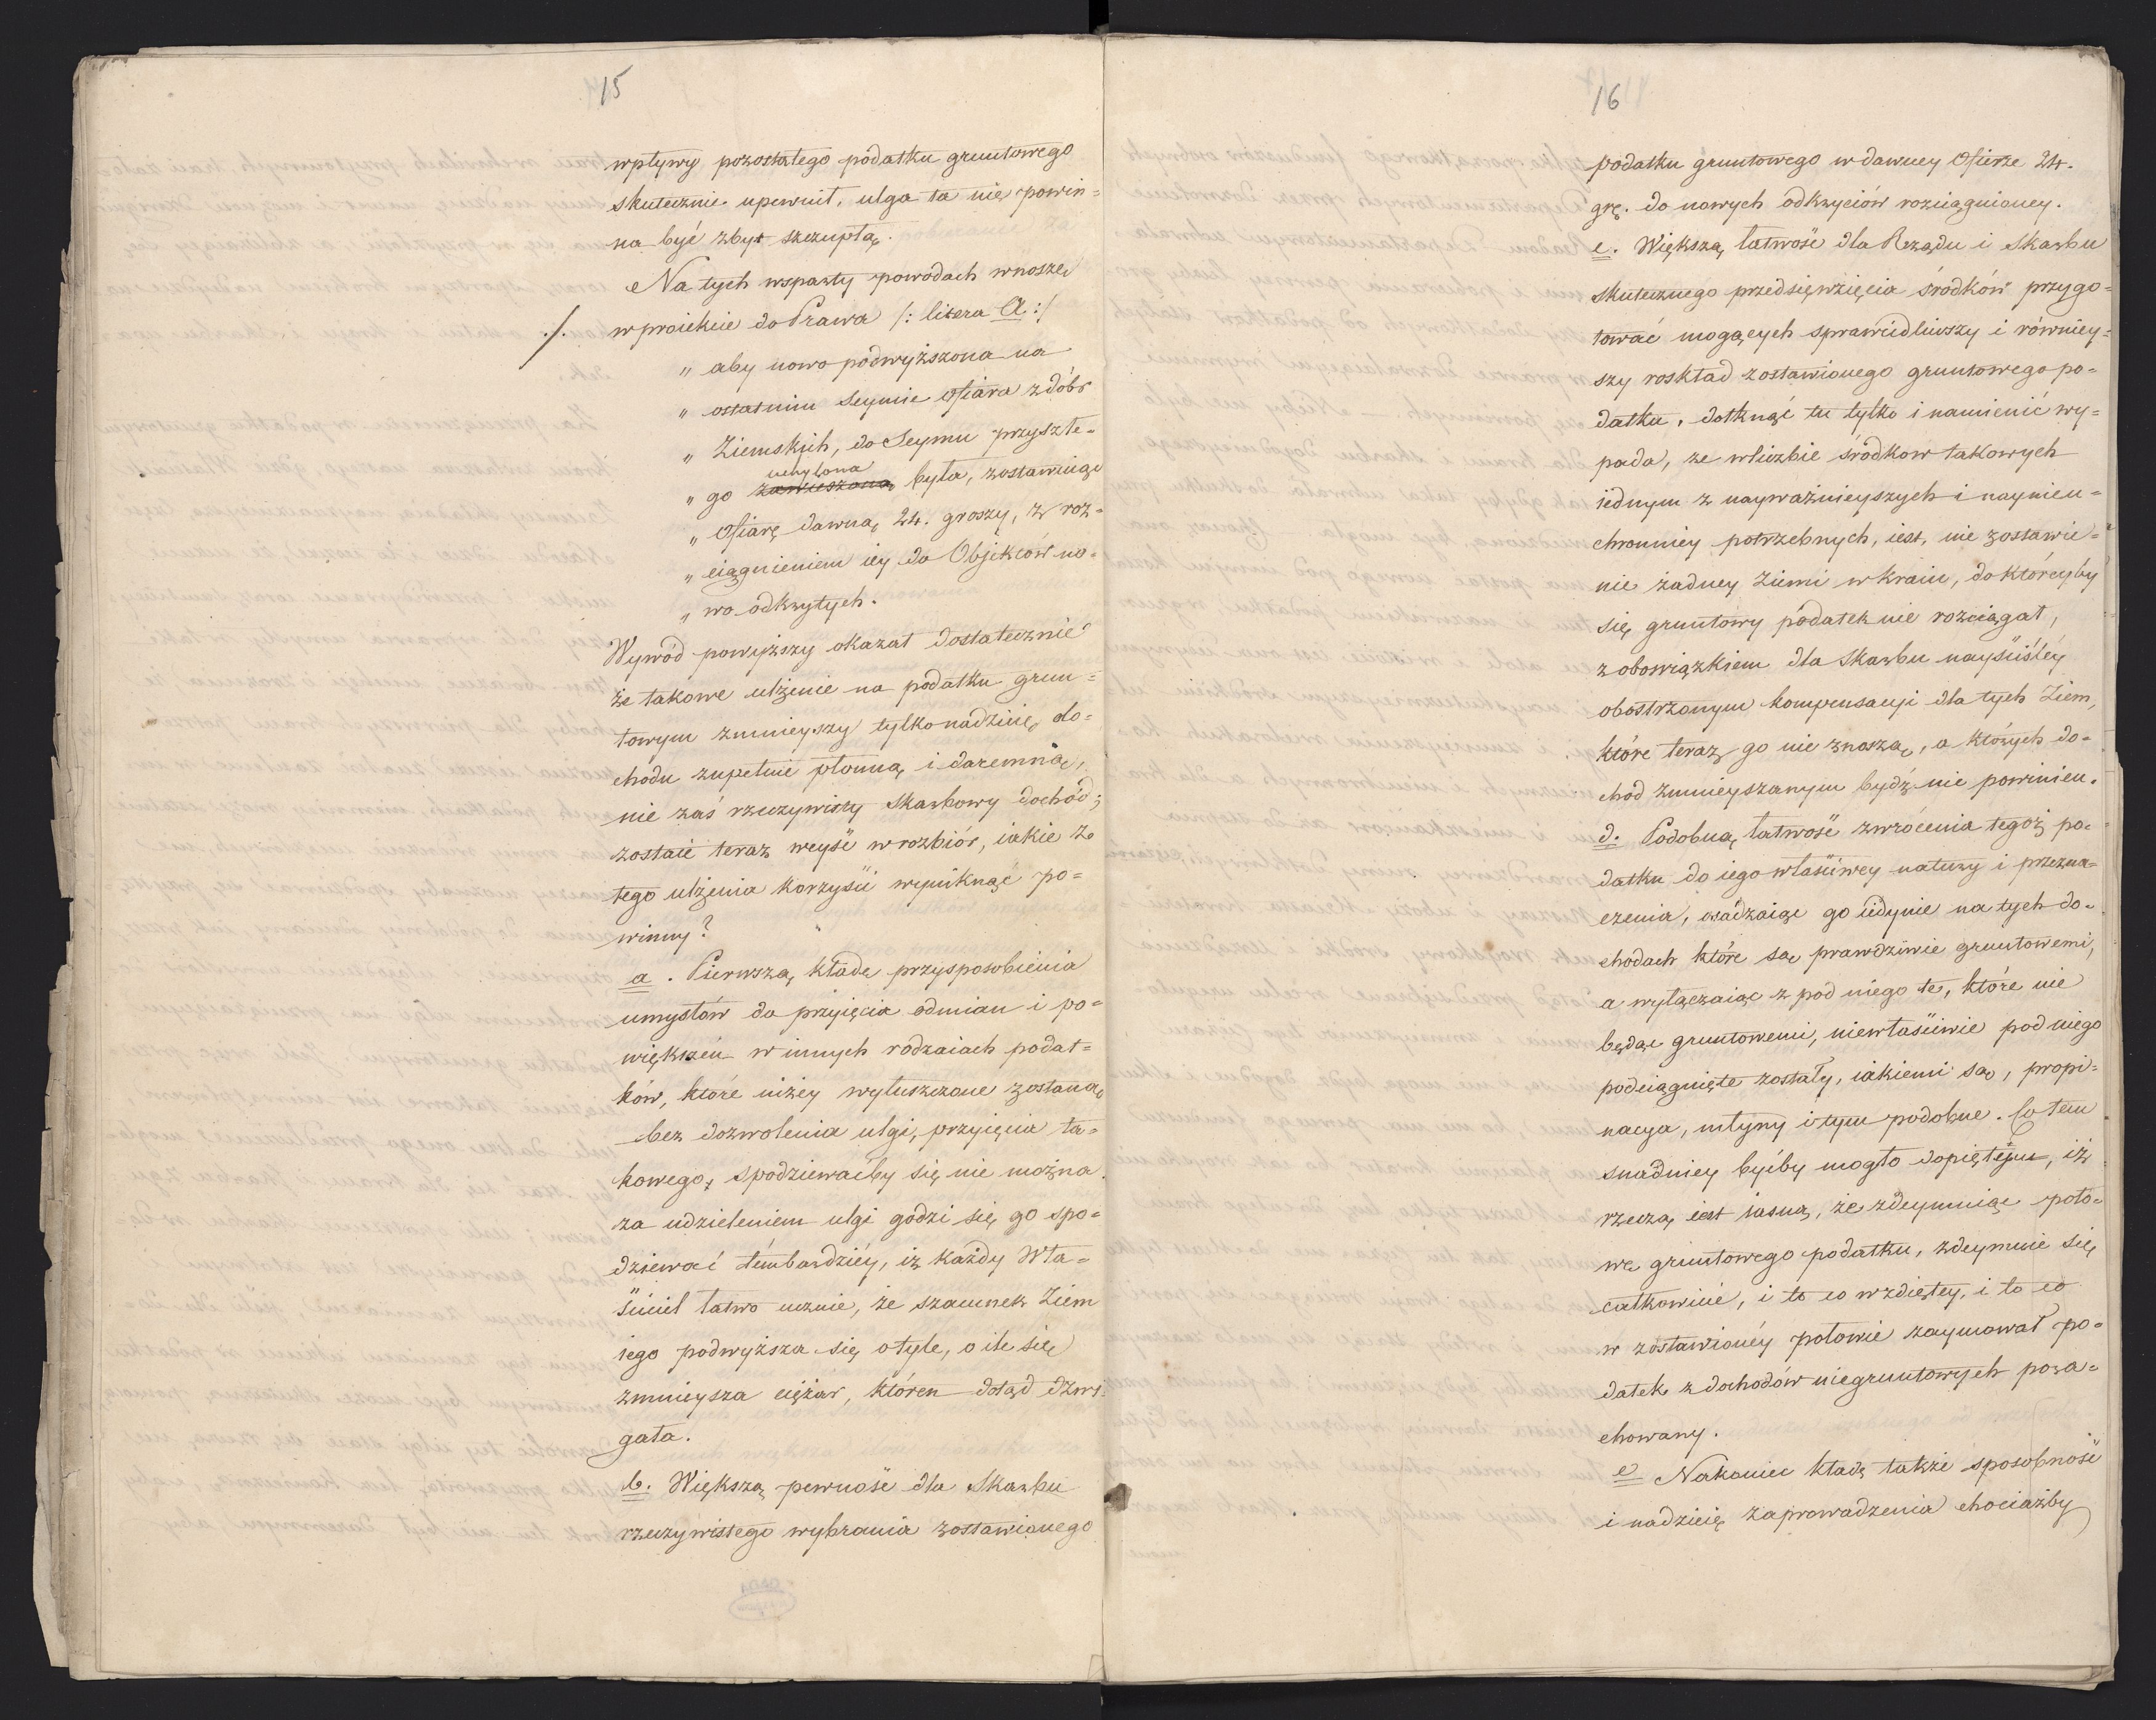 15
wpływy pozostałego podatku gruntowego
skutecznie upewnił, ulga ta nie powin=
na być zbyt szczupłą.
Na tych wsparty powodach wnoszę
./. w proiekcie do Prawa /: litera A :/
„ aby nowo podwyższona na
„ ostatnim Seymie ofiara z dóbr
„ Ziemskich, do Seymu przyszłe=
uchylona
„ go zawieszona była, zostawuiąc
„ Ofiarę dawną 24. groszy, z roz=
„ ciągnieniem iey do Objektów no=
„ wo odkrytych.
Wywód powyższy okazał dostatecznie
że takowe ulżenie na podatku grun=
towym zmnieyszy tylko nadzieię do=
chodu zupełnie płonną i daremną,
nie zaś rzeczywisty Skarbowy dochód;
zostaie teraz weyść w rozbiór, iakie ze
tego ulżenia korzyści wyniknąć po=
winny?
a. Pierwszą kładę przysposobienia
umysłów do przyięcia odmian i po=
większeń w innych rodzaiach podat=
ków, które niżey wyłuszczone zostaną
bez dozwolenia ulgi, przyięcia ta=
kowego, spodziewaćby się nie można
za udzieleniem ulgi godzi się go spo=
dziewać témbardziéy, iż każdy Wła=
ściciel łatwo uzna, że szacunek Ziem
iego podwyższa się o tyle, o ile się
zmnieysza ciężar, któren dotąd dźwi=
gała.
b. Większą pewność dla Skarbu
rzeczywistego wybrania zostawionego
16
podatku gruntowego w dawney Ofierze 24.
gr. do nowych odkryciów rozciągnioney.
c. Większą łatwość dla Rządu i Skarbu
skutecznego przedsięwzięcia środków przygo=
tować mogących sprawiedliwszy i równiey=
szy roskład zostawionego gruntowego po=
datku, dotknąć tu tylko i namienić wy=
pada, że w liczbie środków takowych
iednym z nayważnieyszych i naynieu=
chronniey potrzebnych, iest, nie zostawie=
nie żadney Ziemi w kraiu, do któreyby
się gruntowy podatek nie rozciągał,
z obowiązkiem dla Skarbu nayściśléy
obostrzonym kompensacyi dla tych Ziem,
które teraz go nie znoszą, a których do=
chód zmnieyszanym bydź nie powinien.
d. Podobną łatwość zwrócenia tegoż po=
datku do iego właściwey natury i przezna=
czenia, osadzaiąc go iedynie na tych do=
chodach które są prawdziwie gruntowemi,
a wyłączaiąc z pod niego te, które nie
będąc gruntowemi, niewłaściwie pod niego
podciągnięte zostały, iakiemi są, propi=
nacya, młyny i tym podobne. Co tem
snadniey byćby mogło dopiętém, iż
rzeczą iest iasną, że zdeymuiąc poło=
wę gruntowego podatku, zdeymuie się
całkowicie, i to co w zdiętey, i to co
w zostawionéy połowie zaymował po=
datek z dochodów niegruntowych poza=
chowany.
e Nakoniec kładę także sposobność
i nadzieię zaprowadzenia chociażby